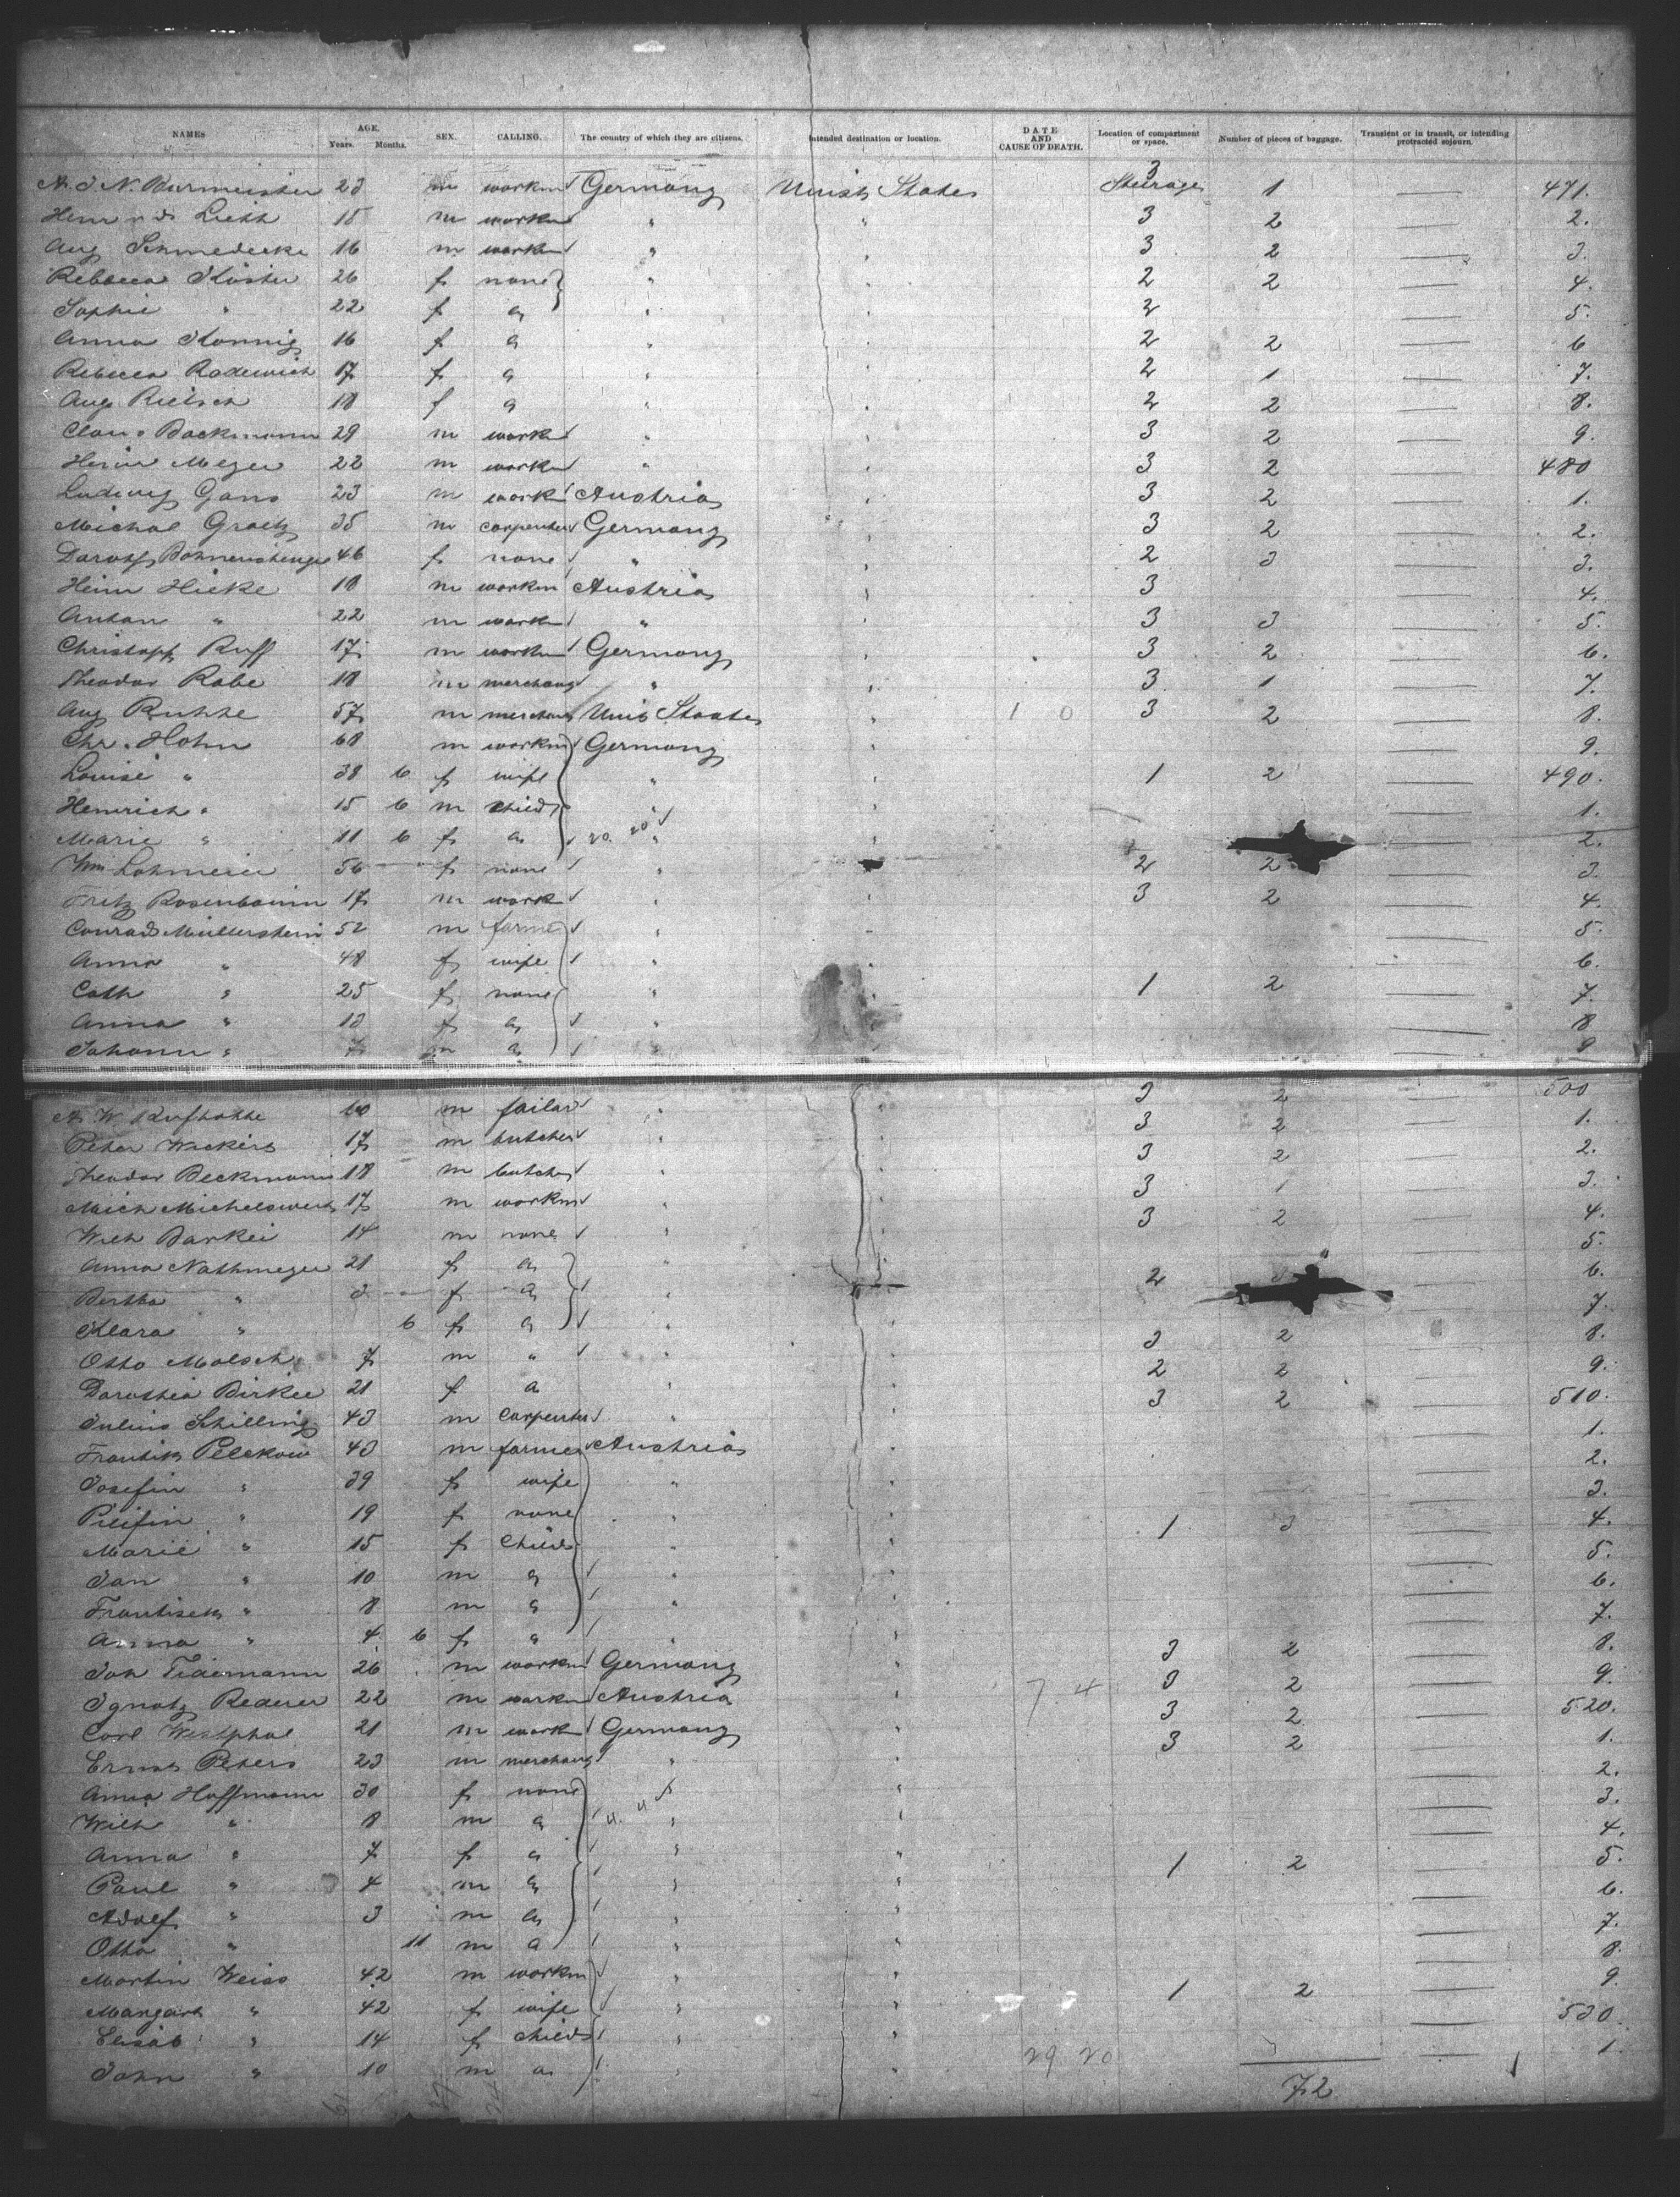 NAMES AGE. Years. Months. SEX. CALLING. The country of which they are citizens. Intended destination or location. DATE AND CAUSE OF DEATH. Location of compartment or space. Number of pieces of baggage. Transient or in transit, or intending protracted sojourn.
A. J. N. Burmeister 23 m workm Germany Unit States 3 Steerage 1 471.
Lieth 15 m workm " " 3 2 2.
Aug Schmedecke 16 m workm " " 3 2 3.
Rebbeca Köster 26 f none " " 2 2 4.
Sophie " 22 f a " " 2 5.
Anna 16 f a " " 2 2 6
Rebecca Radewich 17 f a " " 2 1 7.
Aug. Rietsch 18 f a " " 2 2 8.
Claus Backmann 29 m workm " " 3 2 9.
Heinr Meyer 22 m workm " " 3 2 480
Ludwig Gans 23 m workm Austria " 3 2 1.
Michal Graetz 35 m carpenter Germany " 3 2 2.
46 f none " " 2 3 3.
Heinr Hieke 18 m workm Austria " 3 4.
Anton " 22 m workm " " 3 3 5.
Christoph Ruff 17 m workm Germany " 3 2 6.
Theodor Rabe 18 m merchant " " 3 1 7.
Aug 57 m merchant Unit Staates " 1 0 3 2 8.
Chr. Hohn 68 m workm Germany 9.
Louise " 38 6 f wife " " 1 2 490.
Heinrich " 15 6 m child " " 1.
Marie " 11 6 f a 20. 20 " 2.
Wm Lohmeier 56 f none " 2 2 3.
Fritz Rosenbaum 17 m work " " 3 2 4.
Conrad Müllerstein 52 m farmer " " 5.
Anna " 48 f wife " " 6.
Cath " 25 f none " 1 2 7.
Anna " 13 f a " " 8
Johann " 7 m a " " 9
A. W. 60 m " " 3 2 500
Peter Wickers 17 m butcher " 3 2 1.
Theodor Beckmann 18 m butcher " " 3 2 2.
Mich 17 m workm " " 3 1 3.
Wilh 14 m none " " 3 2 4.
Anna Nathmeyer 21 f a " " 5.
Bertha " 3 f a " 2 6.
Klara " 6 f a " " 7.
Otto Malsch 7 m " " " 3 2 8.
Dorothea Birkee 21 f a " " 2 2 9.
Julius Schilling 43 m carpenter " " 3 2 510.
Frantisk 43 m farmer Austria " 1.
Josefin " 39 f wife " " 2.
19 f none " " 3.
Marie " 15 f child " " 1 3 4.
Jan " 10 m a " " 5.
Frantisek " 8 m a " " 6.
Anna " 4 6 f " " " 7.
Joh Tidemann 26 m workm Germany " 3 2 8.
Ignatz Rederer 22 m workm Austria " 7. 4 3 2 9.
Carl Westphal 21 m workm Germany " 3 2 520.
Ernst Peters 23 m merchant " " 3 2 1.
Anna Hoffmann 30 f none " " 2.
Wilh " 8 m a 4. 4 " " 3.
Anna " 7 f a " " 4.
Paul " 4 m a " " 1 2 5.
Adolf " 3 m a " " 6.
Otto " 11 m a " " 7.
Martin Weiss 42 m workm " " 8.
Margart " 42 f wife " " 1 2 9.
Elisab " 14 f child " " 530.
John " 10 m a " " 29 20 1.
72